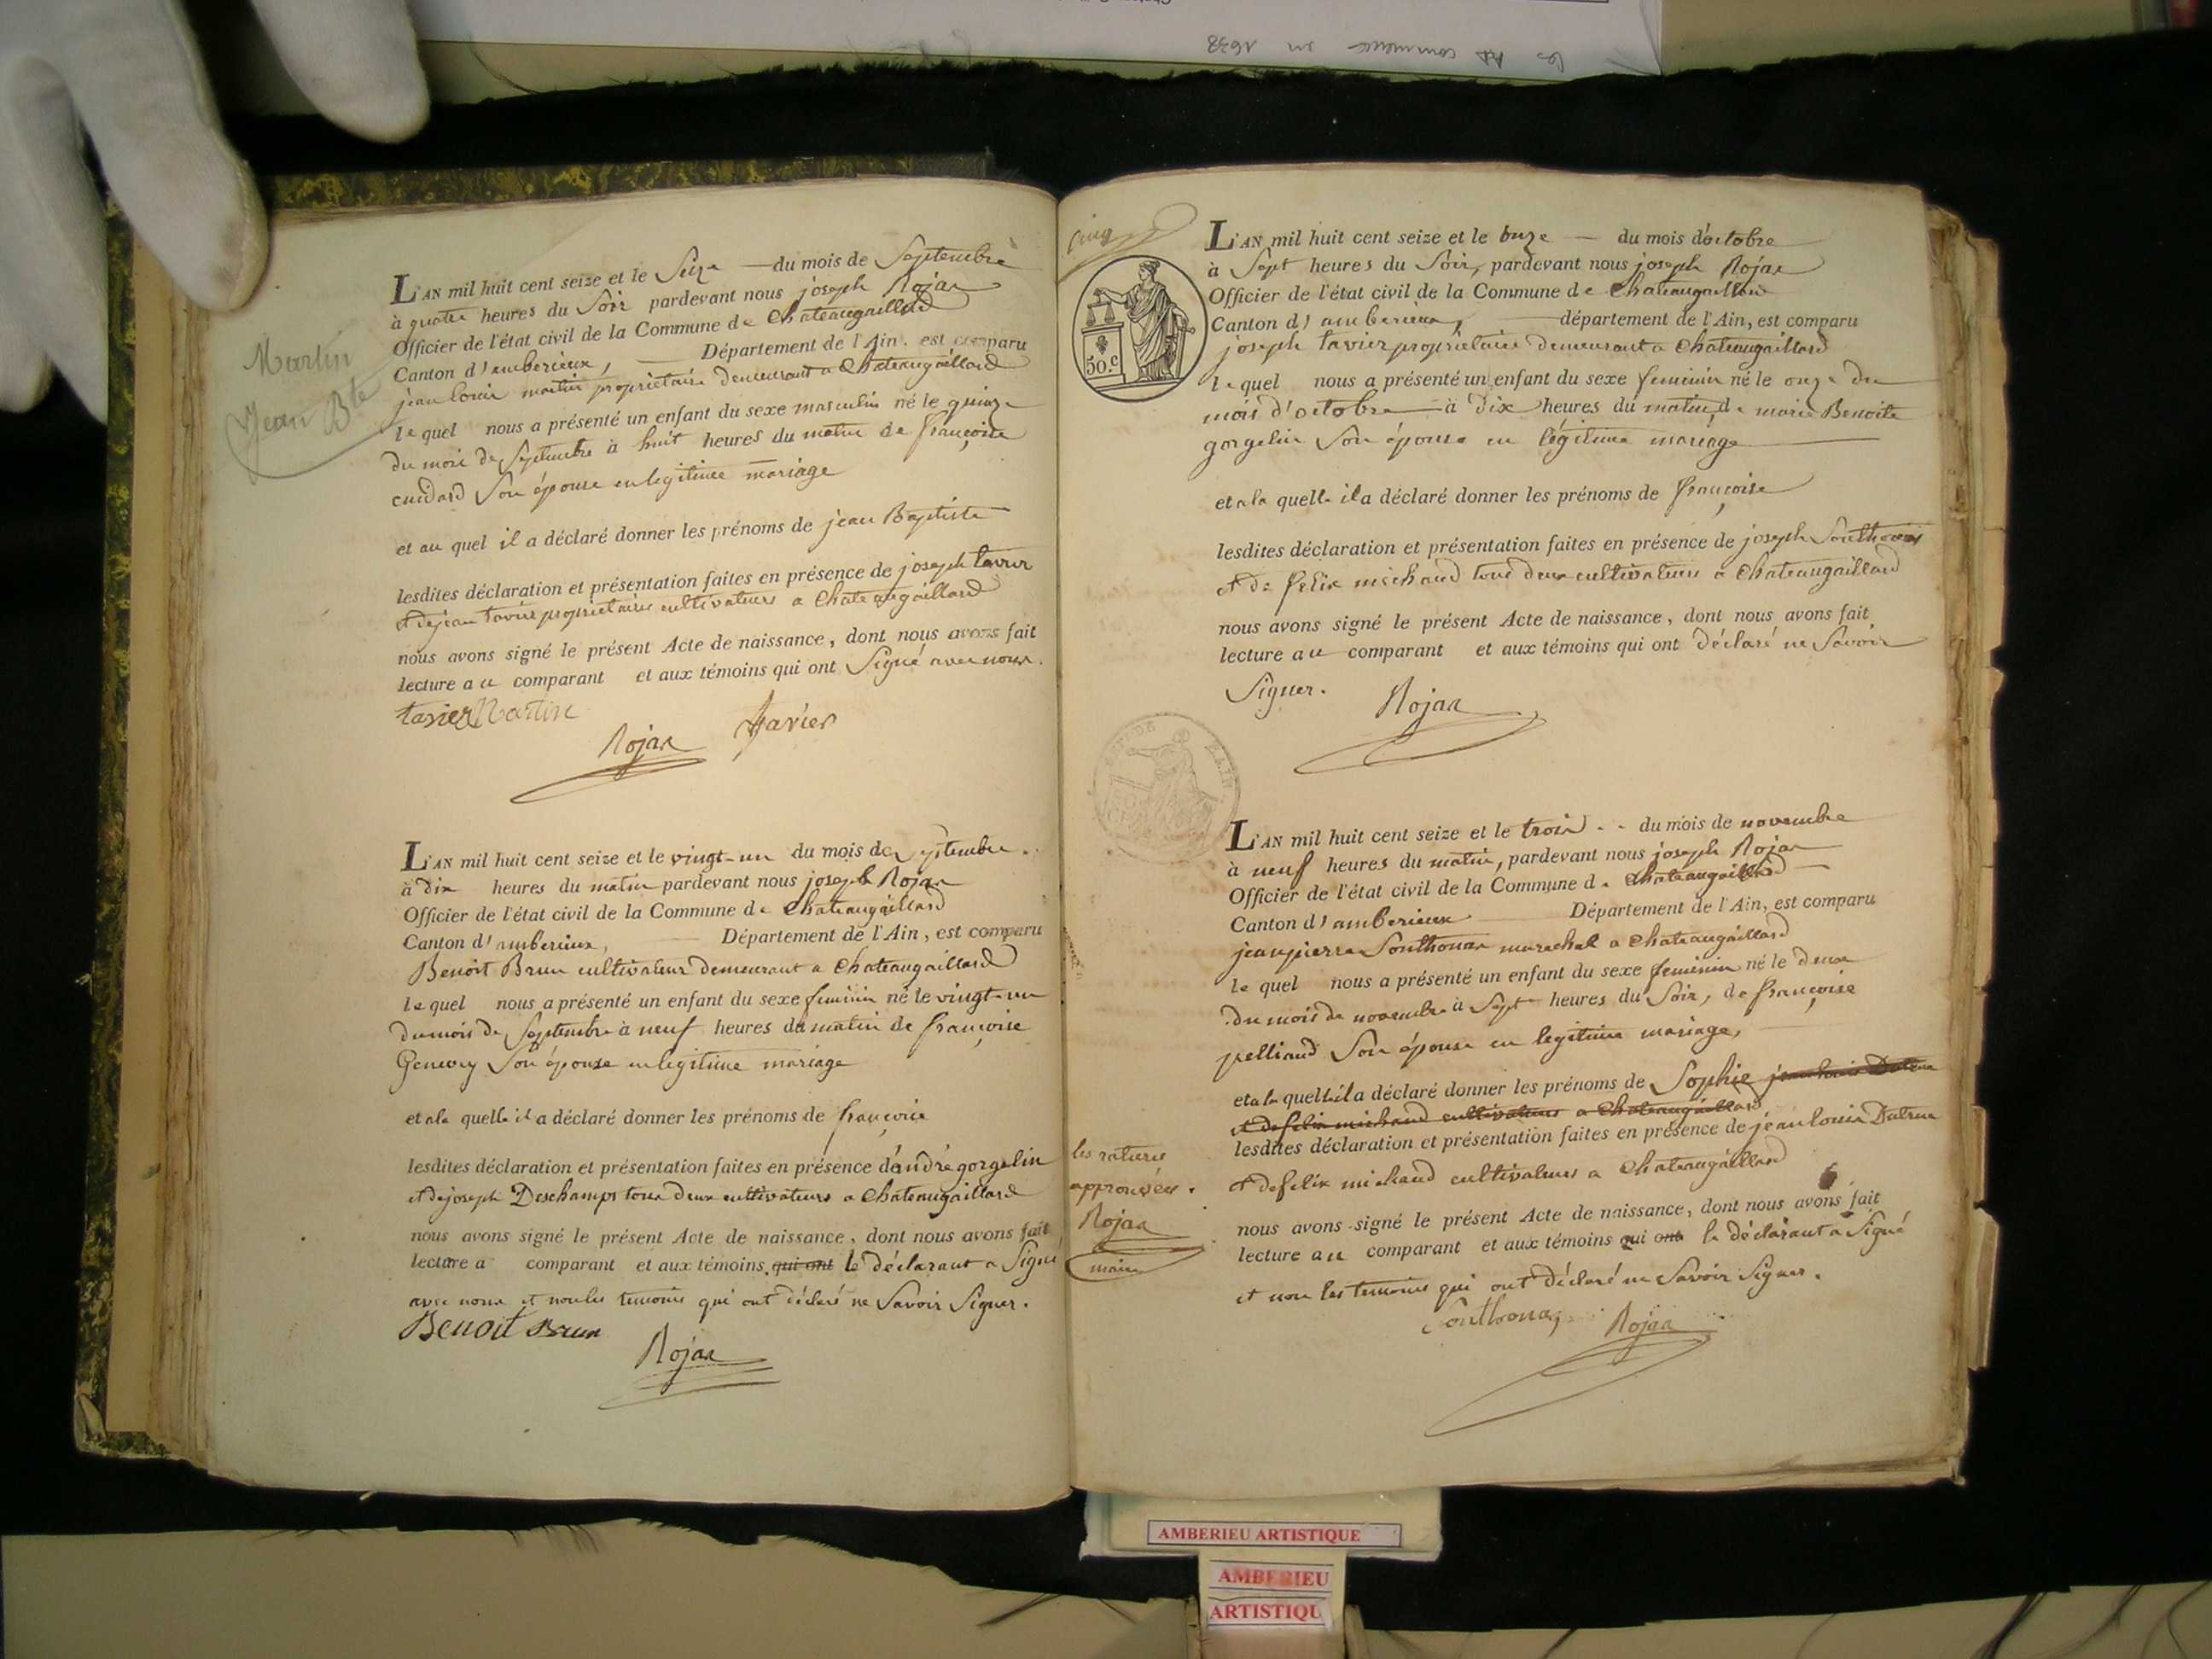 les AR commence en 1638
Martin
Jean Bte
L'AN mil huit cent seize et le Seize — du mois de Septembre
à quatre heures du Soir pardevant nous joseph Rojan
Officier de l'état civil de la Commune de Chateaugaillard
Canton d'amberieux, — Département de l'Ain. est comparu
jean louis martin propriétaire demeurant a Chateaugaillard
lequel nous a présenté un enfant du sexe masculin né le quinze
du mois de Septembre à huit heures du matin de françoise
cuidard Son épouse en legitime mariage
et au quel il a déclaré donner les prénoms de jean Baptiste
lesdites déclaration et présentation faites en présence de joseph tavier
et de jean tavier propriétaires cultivateurs a Chateaugaillard
nous avons signé le présent Acte de naissance, dont nous avons fait
lecture au comparant et aux témoins qui ont Signé avec nous.
tavier Martin
Rojan Tavier
L'AN mil huit cent seize et le vingt-un du mois de Septembre.
à dix heures du matin pardevant nous joseph Rojan
Officier de l'état civil de la Commune de Chateaugaillard
Canton d'amberieux, — Département de l'Ain, est comparu
Benoit Brun cultivateur demeurant a Chateaugaillard
lequel nous a présenté un enfant du sexe feminin né le vingt-un
du mois de Septembre à neuf heures du matin de françoise
Genevey Son épouse en legitime mariage
et a la quelle il a déclaré donner les prénoms de françoise
lesdites déclaration et présentation faites en présence d'andré gorgelin
et de joseph Deschamps tous deux cultivateurs a Chateaugaillard
nous avons signé le présent Acte de naissance, dont nous avons fait
lecture a comparant et aux témoins qui ont le déclarant a Signé
avec nous et non les temoins qui ont déclaré ne Savoir Signer.
Benoit Brun
Rojan
cinq
50.C
L'AN mil huit cent seize et le onze — du mois d'octobre
à Sept heures du Soir, pardevant nous joseph Rojan
Officier de l'état civil de la Commune de Chateaugaillard
Canton d'amberieux, — département de l'Ain, est comparu
joseph tavier propriétaire demeurant a Chateaugaillard
lequel nous a présenté un enfant du sexe feminin né le onze du
mois d'octobre — à Dix heures du matin, de marie Benoite
gorgelin Son épouse en légitime mariage
et a la quelle il a déclaré donner les prénoms de françoise
lesdites déclaration et présentation faites en présence de joseph Southonax
et de felix michaud tous deux cultivateurs a Chateaugaillard
nous avons signé le présent Acte de naissance, dont nous avons fait
lecture au comparant et aux témoins qui ont déclaré ne Savoir
Signer.
Rojan
L'AN mil huit cent seize et le trois - - du mois de novembre
à neuf heures du matin, pardevant nous joseph Rojan
Officier de l'état civil de la Commune de Chateaugaillard —
Canton d'amberieux — Département de l'Ain, est comparu
jean pierre Southonax marechal a Chateaugaillard
le quel nous a présenté un enfant du sexe feminin né le deux
du mois de novembre à Sept heures du Soir, de françoise
pelliaud Son épouse en legitime mariage,
et a la quelle il a déclaré donner les prénoms de Sophie jean louis Dutrue
et de felix michaud cultivateurs a Chateaugaillard
lesdites déclaration et présentation faites en présence de jean louis Dutrue
et de felix michaud cultivateurs a Chateaugaillard
nous avons signé le présent Acte de naissance, dont nous avons fait
lecture au comparant et aux témoins qui ont le déclarant a Signé
et non les temoins qui ont déclaré ne Savoir Signer.
Southonax Rojan
les ratures
approuvées.
Rojan
maire
AMBERIEU ARTISTIQUE
AMBERIEU
ARTISTIQU